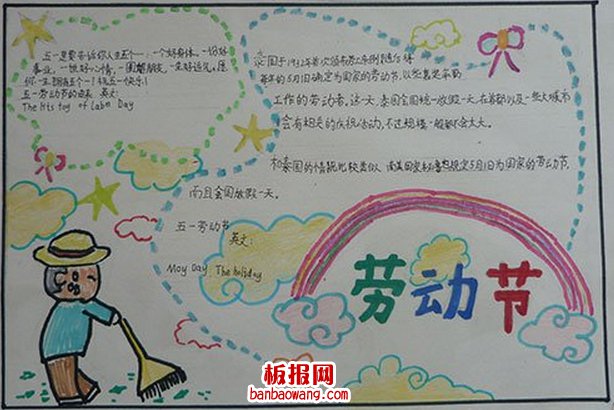 五一是要告诉你人生五个一:一个好身体,一份好
事业,一世好心情,一圈铁朋友,一生好运兄,愿
你一生拥有五个一!祝五一快乐!
五一劳动节的由来 英文:
The hits toy of Labn Day
泰国于1932年首次颁布劳工条例随后将
每年的5月1日确定为国家的劳动节,以慰嘉辛勤
工作的劳动者。这一天,泰国全国统一放假一天,在首都以及一些大城市
会有相关的庆祝活动,不过规模一般都不会太大。
和泰国的情况比较类似,南美国家
规定5月1日为国家的劳动节,
而且全国放假一天。
五一劳动节
英文:
Moy Day The holiday
劳动节
板报网
banbaowang.com